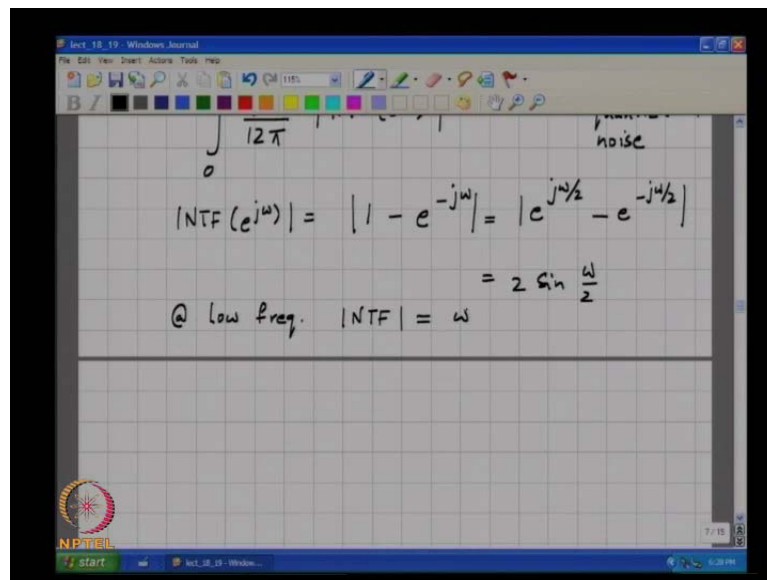 lect_18_19 - Windows Journal
File Edit View Insert Actions Tools Help
115%
B I
12 π
noise
0
|NTF (e^{jω})| = |1 - e^{-jω}| = |e^{jω/2} - e^{-jω/2}|
= 2 sin ω/2
@ low freq. |NTF| = ω
7/15
NPTEL
start
lect_18_19 - Window...
6:28 PM